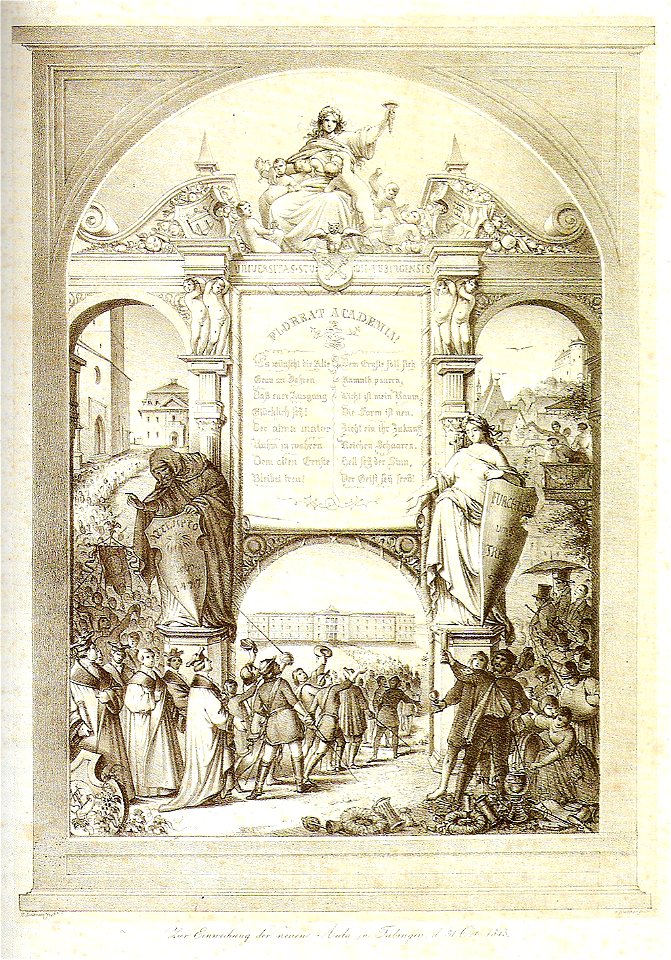 UNIVERSITAS STUDII TUBINGENSIS
FLOREAT ACADEMIA!
Es wünscht die Alte
Grau an Jahren
Daß euer Ausgang
Glücklich sei!
Der alma mater
Ruhm zu wahren
Dem alten Ernste
Bleibet treu!
Dem Ernste soll sich
Anmuth paaren,
Licht ist mein Raum,
Die Form ist neu.
Zieht ein ihr Zukunft
Reichen Schaaren,
Hell sey der Sinn,
Der Geist sey frei!
1477
Zur Einweihung der neuen Aula in Tübingen d. 31 Oct. 1845.